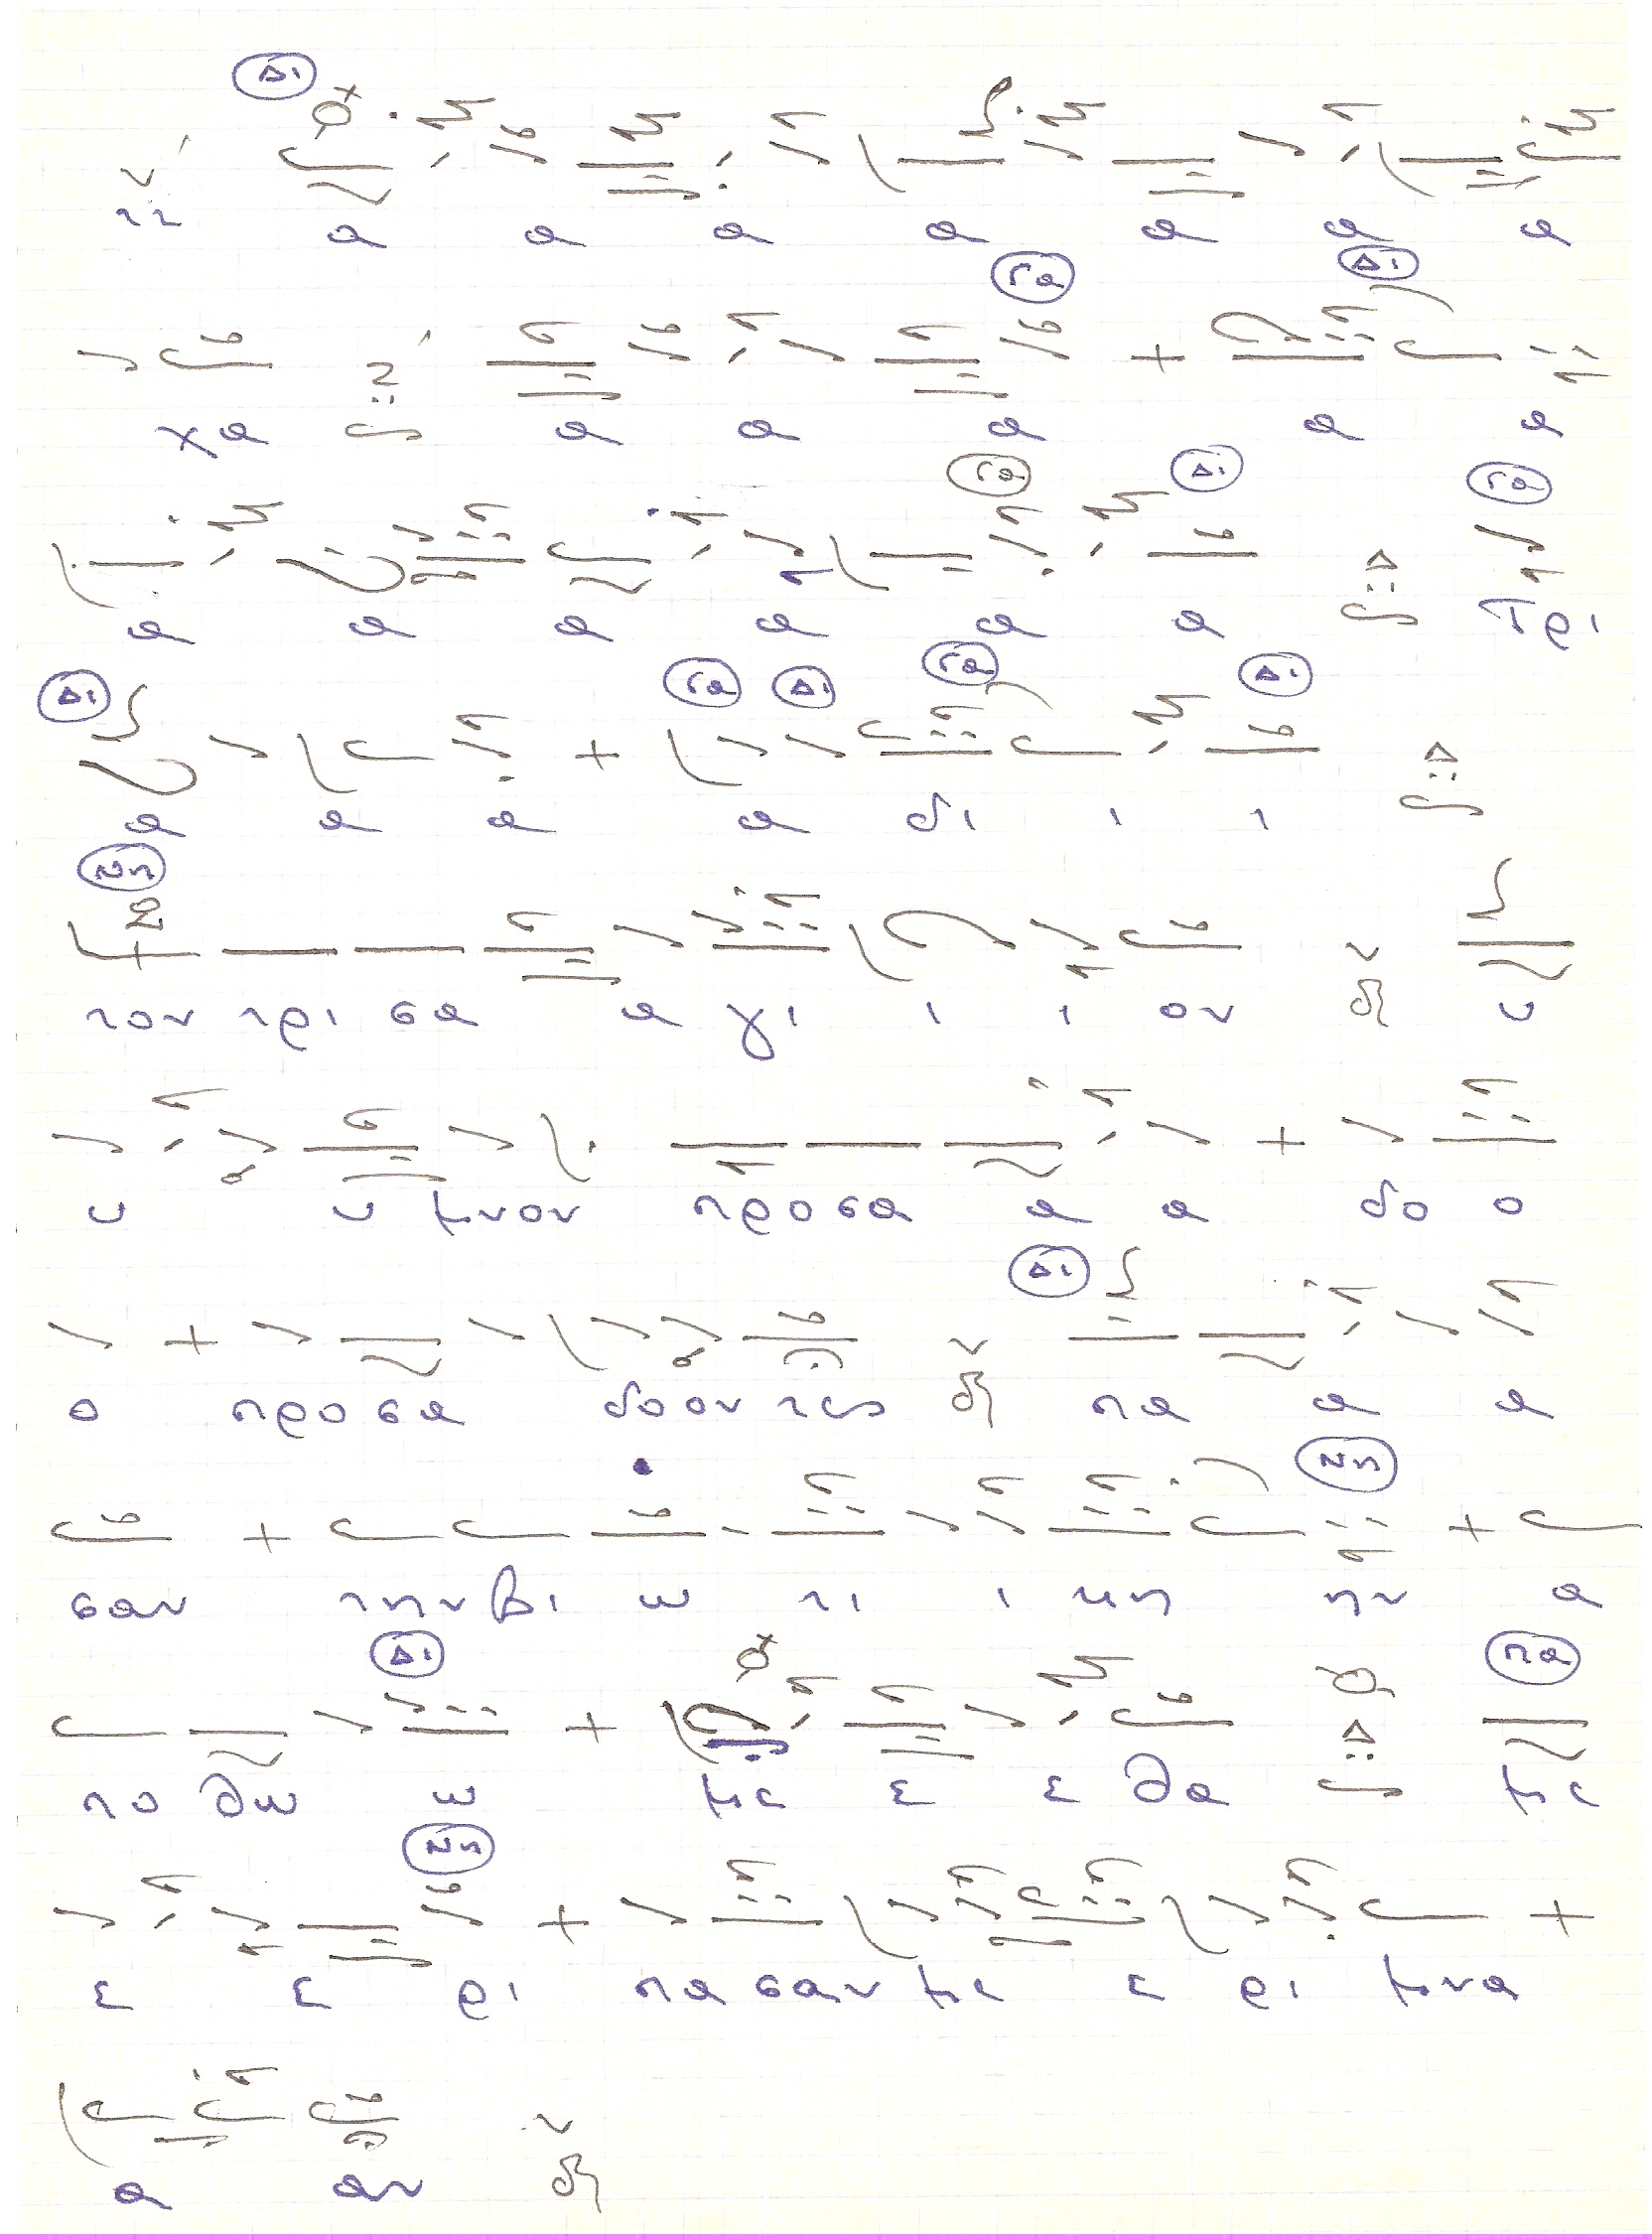 Δι
α α α α α α α
Γα Δι
χα α α α α α
Γα Δι Γα
α α α α α α Τρι
Δι Γα Δι Γα Δι
α α α α δι ι ι
Νη
τον τρι σα α γι ι ι ον υ
υ υ μνον προσα α α δο ο
Δι
ο προσα δοον τες πα α α
Νη
σαν την βι ω τι ι κη ην α
Δι Πα
πο θω ω με ε ε θα με
Νη
ε ε ρι πα σαν με ε ρι μνα
α αν